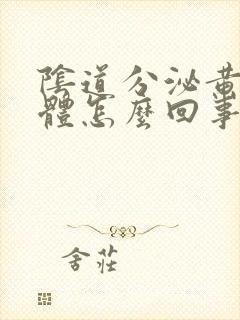 陰道分泌黃
體怎麼回事
舍莊